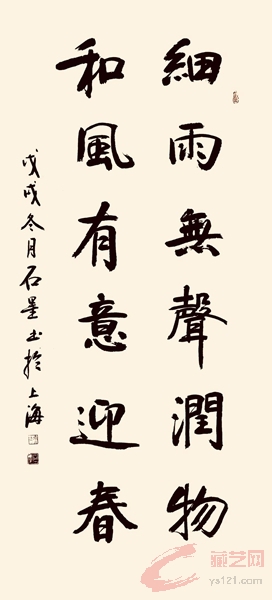 細雨無聲潤物
和風有意迎春
戊戌冬月石墨书於上海
藏艺网
ys121.com